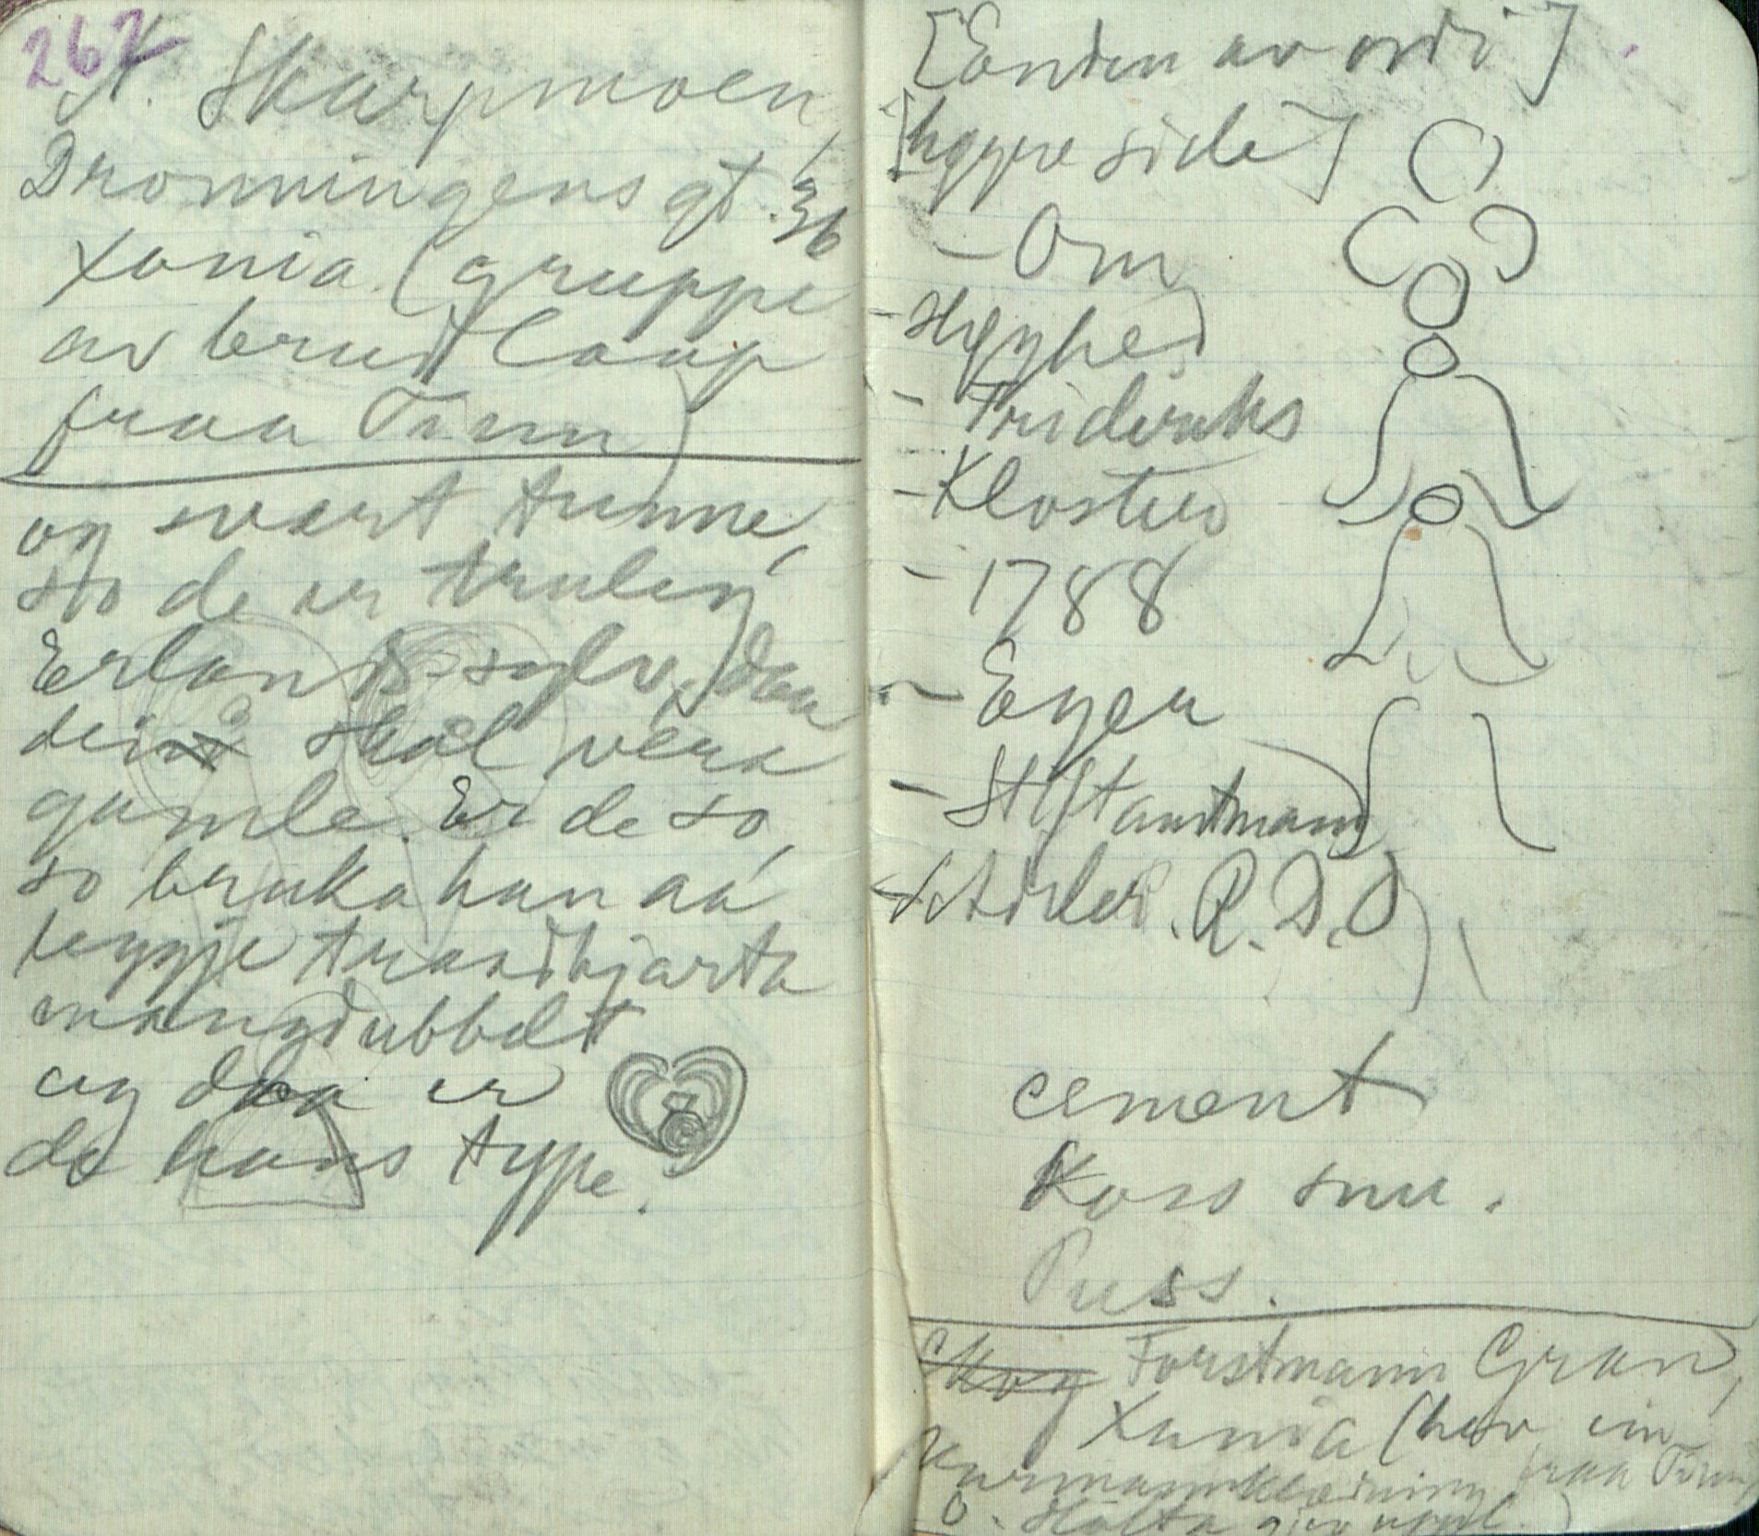 262
N. Skarpmoen,
Dronningens gt. 36
Xania (gruppe
av brudlaup
fraa Tinn)
og svært tunne,
so de er truleg
Erlands-sylv, daa
dei skal vera
gamle. Er de so,
so bruka han aa
leggje traadhjarta
mangdubbelt
og daa er
de hans type.
[Enden av ordi]
[høgre side]
- Om
- Høyhed
- Frideriks
- Klosters
- 1788
- Eyer
- Stiftamtmand
R. D. O
cement
Koss snu.
Puss.
Skog Forstmann Gran,
Xania (hev ein
Karmannsklædning fraa Tinn
O. Holta giev uppl.)